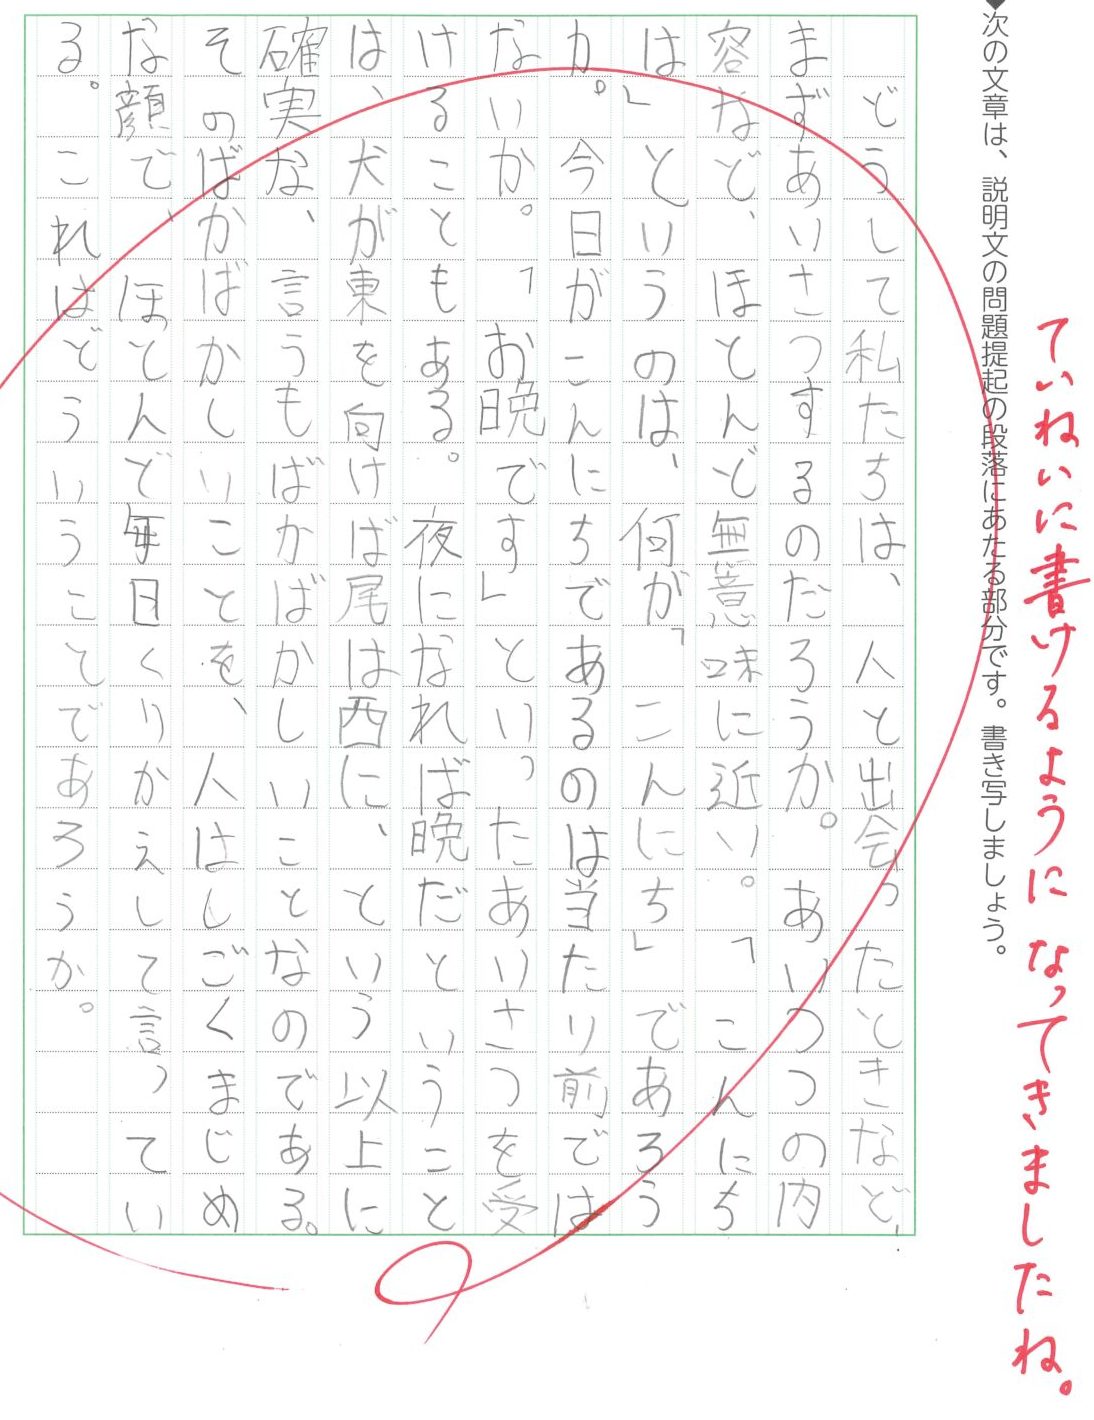 ◆次の文章は、説明文の問題提起の段落にあたる部分です。書き写しましょう。
ていねいに書けるようになってきましたね。
どうして私たちは、人と出会ったときなど、
まずあいさつするのだろうか。あいつつの内
容など、ほとんど無意味に近い。「こんにち
は」というのは、何が「こんにち」であろう
か。今日がこんにちであるのは当たり前では
ないか。「お晩です」といったあいさつを受
けることもある。夜になれば晩だということ
は、犬が東を向けば尾は西に、という以上に
確実な、言うもばかばかしいことなのである。
そのばかばかしいことを、人はしごくまじめ
な顔で、ほとんど毎日くりかえして言ってい
る。これはどういうことであろうか。